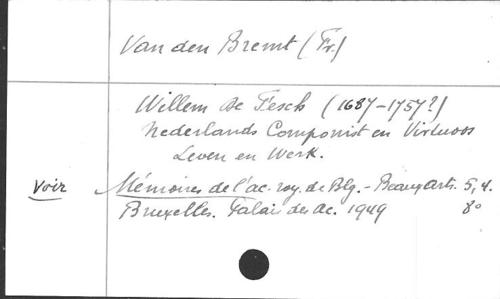 Van den Bremt (Fr.)
Willem De Fesch (1687-1757?)
Nederlands Componist en Virtuoos
Leven en Werk.
Voir Mémoires de l'ac. roy. de Blg. - Beaux Arts. 5, 4.
Bruxelles. Palais des Ac. 1949 8°